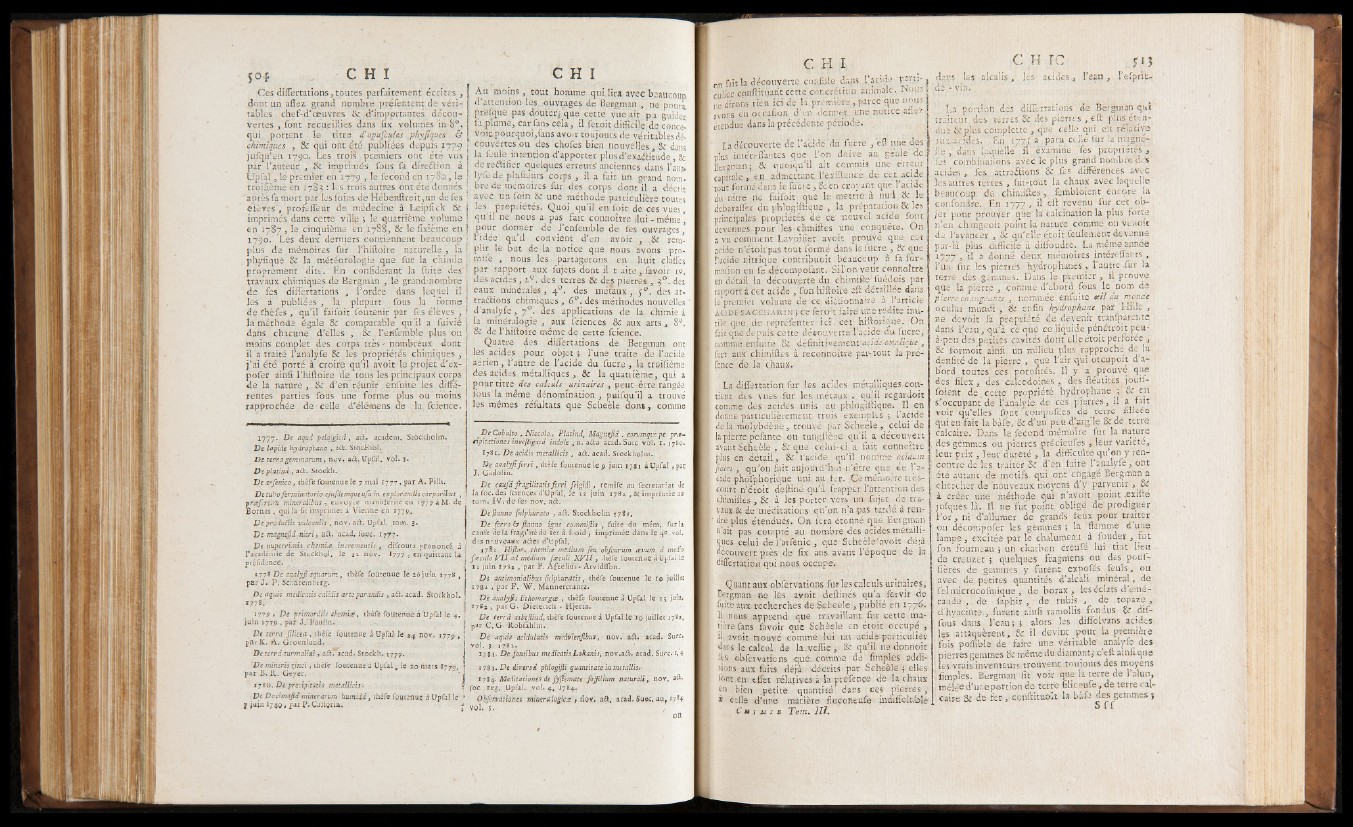 504 C H I
Ces dissertations, toutes parfaitement écrites,
dont un assez grand nombre présentent de véri-
tables chef-d'œuvres & d'importantes décou-
vertes, sont recueillies dans six volumes in-8°.
qui portent le titre d'opuscules physiques &
chimiques, & qui ont été publiées depuis 1779
jusqu'en 1790. Les trois premiers ont été vus
par l'auteur, & imprimés sous sa direction à
Upsal, le premier en 1779, le second en 1780, le
troisième en 1783: les trois autres ont été donnés
après sa mort par les soins de Hébenstreit, un de ses
élèves, professeur de médecine à Leipsick &
imprimés dans cette ville; le quatrième volume
en 1787, le cinquième en 1788, & le sixième en
1790. Les deux derniers contiennent beaucoup
plus de mémoires sur l'histoire naturelle, la
physique & la météorologie que sur la chimie
proprement dite. En considérant la suite des
travaux chimiques de Bergman, le grand nombre
de ses dissertations, l'ordre dans lequel il
les a publiées, la plupart sous la forme
de thèses, qu'il faisoit soutenir par ses élèves,
la méthode égale & comparable qu'il a suivie
dans chacune d'elles, & l'ensemble plus ou
moins complet des corps très-nombreux dont
il a traité l'analyse & les propriétés chimiques,
j'ai été porté à croire qu'il avoit le projet d'ex-
poser ainsi l'histoire de tous les principaux corps
de la nature, & d'en réunir ensuite les diffé-
rentes parties sous une forme plus ou moins
rapprochée de celle d'élémens de la science.
1777. De aquâ pelagicâ, act. academ. Stockholm.
De lapide hydrophano, act. Stockhol.
De terra gemmarum, nov. act. Upsal. vol. 3.
De platinâ, act. Stockh.
De arsenico, thèse soutenue le 7 mai 1777, par A. Pilh.
De tubo ferruminatorio ejusdemque usu in explorandis corporibus,
præsertim mineralibus, envoyée manuscrite en 1777 à M. de
Bornes, qui la fit imprimer à Vienne en 1779.
De productis vulcaniis, nov. act. Upsal. tom. 3.
De magnesiâ nitri, act. acad. suec. 1777.
De nuperrimis chemiæ incrementis, discours prononcé à
l'académie de Stockhol. le 12 nov. 1777, en quittant la
présidence.
1778 De analysi aquarum, thèse soutenue le 20 juin 1778,
par J. P. Scharenberg.
De aquis medicatis calidis arte parandis, act. acad. Stockhol.
1778.
1779. De primordiis chemiæ, thèse soutenue à Upsal le 4.
juin 1779, par J. Paulin.
De terra siliceâ, thèse soutenue à Upsal le 24 nov. 1779,
par K. A. Groenlund.
De terrâ turmalini, act. acad. Stockh. 1779.
De mineris zinci, thèse soutenue à Upsal, le 20 mars 1779,
par B. R. Geyer.
1780. De precipitatis metallicis.
De Docimasiâ minerarum humidâ, thèse soutenue à Upsal le
7 juin 1780, par P. Castorin.

C H I
Au moins, tout homme qui lira avec beaucoup
d'attention les ouvrages de Bergman, ne pourra
presque pas douter que cette vue ait pu guider
sa plume, car sans cela, il seroit difficile de conce-
voir pourquoi, sans avoir toujours de véritables dé-
couvertes ou des choses bien nouvelles, & dans
la seule intention d'apporter plus d'exactitude, &
de rectifier quelques erreurs anciennes dans l'ana-
lyse de plusieurs corps, il a fait un grand nom-
bre de mémoires sur des corps dont il a décrit
avec un soin & une méthode particulière toutes
les propriétés. Quoi qu'il en soit de ces vues,
qu'il ne nous a pas fait connoître lui-même,
pour donner de l'ensemble de ses ouvrages
l'idée qu'il convient d'en avoir, & rem-
plir le but de la notice que nous avons pro-
mise, nous les partagerons en huit classes
par rapport aux sujets dont il traite, savoir 1°.
des acides, 2°. des terres & des pierres, 3°. des
eaux minérales, 4°. des métaux, 5°. des at-
tractions chimiques, 6°. des méthodes nouvelles
d'analyse, 7°. des applications de la chimie à
la minéralogie, aux sciences & aux arts, 8°.
& de l'histoire même de cette science.
Quatre des dissertations de Bergman ont
les acides pour objet; l'une traite de l'acide
aérien, l'autre de l'acide du sucre, la troisième
des acides métalliques, & la quatrième, qui a
pour titre des calculs urinaires, peut-être rangée
sous la même dénomination, puisqu'il a trouvé
les mêmes résultats que Scheele dont, comme
De Cobalto, Niccolo, Platinâ, Magnesiâ, eorumque per præ-
cipitationes investigatâ indole, n. acta acad. Suec vol. 1. 1780.
1781. De acidis metallicis, act. acad. Stockholm.
De analysi ferri, thèse soutenue le 9 juin 1781 à Upsal, par
J. Gadolin.
De causâ fragilitatis ferri frigidi, remise au secretariat de
la soc. des sciences d'Upsal, le 12 juin 1781, & imprimée au
tom. IV. de ses nov. act.
De stanno sulphurato, act. Stockholm 1781.
De ferro & stanno igne commistis, suite du mém. sur la
cause de la fragilité du fer à froid, imprimée dans le 4e. vol.
des nouveaux actes d'Upsal.
1782. Histor. chemiæ medium seu obscurum ævum à medio
sæculo VII ad medium sæculi XVII, thèse soutenue à Upsal le
12 juin 1782, par P. Afzelius-Arvidsson.
De antimonialibus sulphuratis, thèse soutenue le 10 juillet
1782, par F. W. Mannercrantz.
De analysi lithomargæ, thèse soutenue à Upsal le 15 juin.
1782, par G. Dieterich-Hjerta.
De terrâ asbestinâ, thèse soutenue à Upsal le 19 juillet 1782,
par C. G. Robsahm.
De aquis acidulatis medviensibus, nov. act. acad. Suec.
vol. 3. 1782.
1783. De fontibus medicatis Lokanis, nov. act. acad. Suec. t. 4
1783. De diversâ phlogisti quantitate in metallis.
1784. Meditationes de systemate fossilium naturali, nov. act.
soc. reg. Upsal. vol. 4, 1784.
Observationes mineralogicæ, nov. act. acad. Suec. an. 1784
vol. 5.
on

C H I
en fait la découverte consiste dans l'acide parti-
culier constituant cette concrétion animale. Nous
ne dirons rien ici de la première, parce que nous
avons eu occasion d'en donner une notice assez
étendue dans la précédente période.
La découverte de l'acide du sucre, est une des
plus intéressantes que l'on doive au génie de
Bergman; & quoiqu'il ait commis une erreur
capitale, en admettant l'existence de cet acide
tout formé dans le sucre, & en croyant que l'acide
du nitre ne faisoit que le mettre à nud & le
débarasser du phlogistique, la préparation & les
principales propriétés de ce nouvel acide sont
devenues pour les chimistes une conquête. On
a vu comment Lavoisier avoit prouvé que cet
acide n'étoit pas tout formé dans le sucre, & que
l'acide nitrique contribuoit beaucoup à sa for-
mation en se décomposant. Si l'on veut connoître
en détail la découverte du chimiste suédois par
rapport à cet acide, son histoire est détaillée dans
le premier volume de ce dictionnaire à l'article
ACIDE SACCHARIN; ce seroit faire une redite inu-
tile que de représenter ici cet historique. On
sait que depuis cette découverte l'acide du sucre,
nommé ensuite & définitivement acide oxalique,
sert aux chimistes à reconnoître par-tout la pré-
sence de la chaux.
La dissertation sur les acides métalliques con-
tient des vues sur les métaux, qu'il regardoit
comme des acides unis au phlogistique. Il en
donne particulièrement trois exemples; l'acide
de la molybdène, trouvé par Scheele, celui de
la pierre pesante ou tungstène qu'il a découvert
avant Scheele, & que celui-ci a fait connoître
plus en détail, & l'acide qu'il nomme acidum
, qu'on sait aujourd'hui n'être que de l'a-
cide phosphorique uni au fer. Ce mémoire très-
court n'étoit destiné qu'à frapper l'attention des
chimistes, & à les porter vers un sujet de tra-
vaux & de méditations qu'on n'a pas tardé à ren-
dre plus étendués. On sera étonné que Bergman
n'ait pas compté au nombre des acides métalli-
ques celui de l'arsenic, que Scheele avoit déjà
découvert près de six ans avant l'époque de la
dissertation qui nous occupe.
Quant aux observations sur les calculs urinaires,
Bergman ne les avoit destinées qu'à servir de
suite aux recherches de Scheele, publié en 1776.
Il nous apprend que travaillant sur cette ma-
tière sans savoir que Scheele en étoit occupé,
il avoit trouvé comme lui un acide particulier
dans le calcul de la vessie, & qu'il ne donnoit
ses observations que comme de simples addi-
tions aux faits déjà décrits par Scheele; elles
sont en effet rélatives à la présence de la chaux
en bien petite quantité dans ces pierres,
& celle d'une matière floconeuse indissoluble
CHIMIE Tom. III.

C H I C 513
dans les alcalis, les acides, l'eau, l'esprit-
de-vin.
La portion des dissertations de Bergman qui
traitent des terres & des pierres, est plus éten-
due & plus complette, que celle qui est rélative
aux acides. En 1775 a paru celle sur la magné-
sie, dans laquelle il examine ses propriétés,
ses combinaisons avec le plus grand nombre des
acides, ses attractions & ses différences avec
les autres terres, sur-tout la chaux avec laquelle
beaucoup de chimistes, sembloient encore la
confondre. En 1777, il est revenu sur cet ob-
jet pour prouver que la calcination la plus forte
n'en changeoit point la nature comme on venoit
de l'avancer, & qu'elle étoit seulement devenue
par-là plus difficile à dissoudre. La même année
1777, il a donné deux mémoires intéressants,
l'un sur les pierres hydrophanes, l'autre sur la
terre des gemmes. Dans le premier, il prouve
que la pierre, connue d'abord sous le nom de
pierre changeante, nommée ensuite œil du monde
oculus mundi, & enfin hydrophane par Hille,
ne devoit sa propriété de devenir transparente
dans l'eau, qu'à ce que ce liquide pénétroit peu-
à-peu des petites cavités dont elle étoit perforée,
& formoit ainsi un milieu plus rapproché de la
densité de la pierre, que l'air qui occupoit d'a-
bord toutes ces porosités. Il y a prouvé que
des silex, des calcedoines, des stéatites jouis-
soient de cette propriété hydrophane; & en
s'occupant de l'analyse de ces pierres, il a fait
voir qu'elles sont composées de terre silicée
qui en fait la base, & d'un peu d'argile & de terre
calcaire. Dans le second mémoire sur la nature
des gemmes ou pierres précieuses, leur variété,
leur prix, leur dureté, la difficulté qu'on y ren-
contre de les traiter & d'en faire l'analyse, ont
été autant de motifs qui ont engagé Bergman a
chercher de nouveaux moyens d'y parvenir, &
à créer une méthode qui n'avoit point existée
jusques là. Il ne fut point obligé de prodiguer
l'or, ni d'allumer de grands feux pour traiter
ou décomposer les gemmes; la flamme d'une
lampe, excitée par le chalumeau à souder, fut
son fourneau; un charbon creusé lui tint lieu
de creuzet; quelques fragmens ou des pous-
sières de gemmes y furent exposés seuls, ou
avec de petites quantités d'alcali minéral, de
sel microcosmique, de borax, les éclats d'éme-
raude, de saphir, de rubis, de topaze,
d'hyacinte, furent ainsi ramollis fondus & dis-
sous dans l'eau; alors les dissolvans acides
les attaquèrent, & il devint pour la première
fois possible de faire une véritable analyse des
pierres gemmes & même du diamant; c'est ainsi que
les vrais inventeurs trouvent toujours des moyens
simples. Bergman fit voir que la terre de l'alun,
mêlée d'une portion de terre siliceuse, de terre cal-
caire & de fer, constituoit la base des gemmes;
S f f